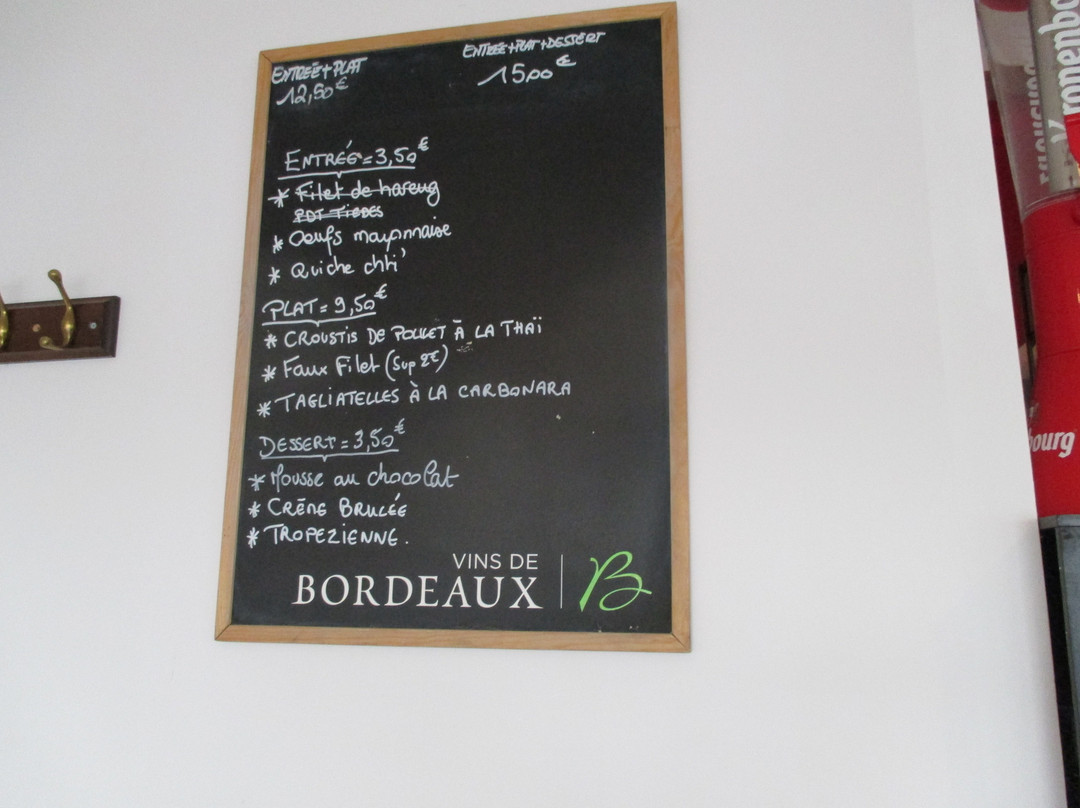 ENTRÉE+PLAT
12,50€
ENTRÉE+PLAT+DESSERT
15,00€
ENTRÉE=3,50€
* Filet de hareng
PDT TIEDES
* Oeufs mayonnaise
* Quiche chti'
PLAT=9,50€
* CROUSTIS DE POULET À LA THAÏ
* Faux Filet (Sup 2€)
* TAGLIATELLES À LA CARBONARA
DESSERT=3,50€
* Mousse au chocolat
* CRÈME BRULÉE
* TROPEZIENNE.
VINS DE
BORDEAUX
B
ronenbo
bourg